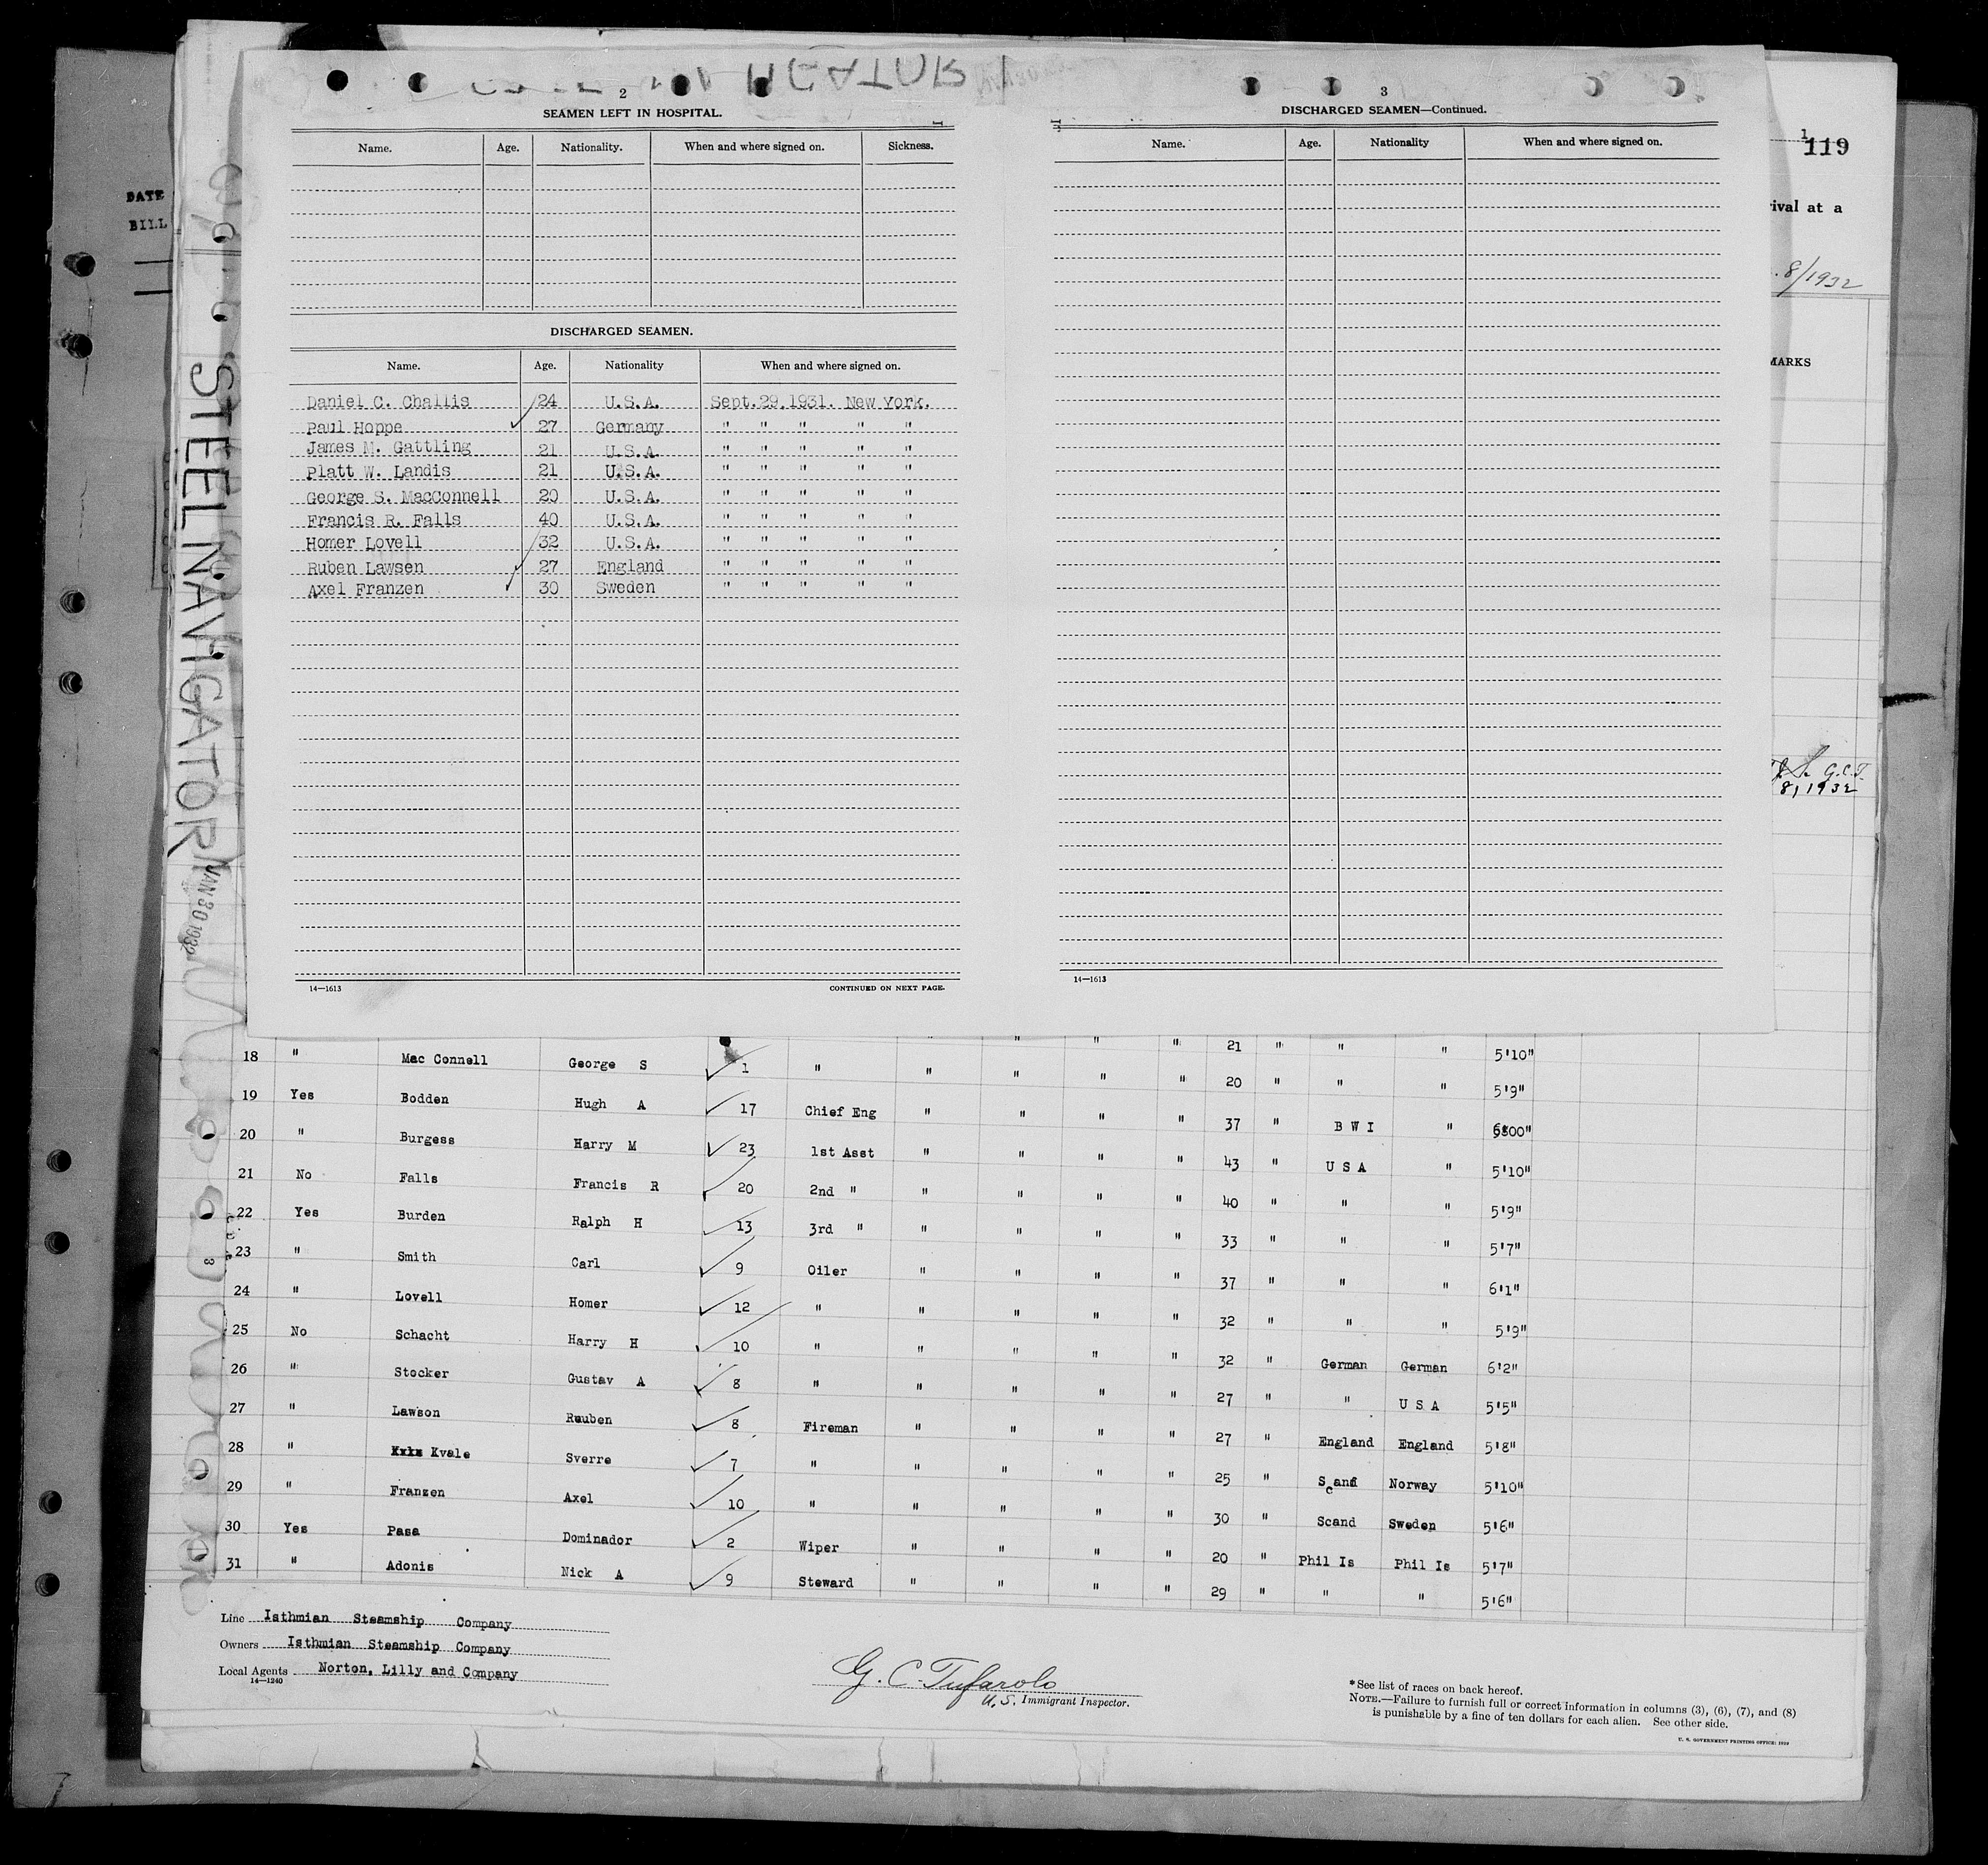 2
SEAMEN LEFT IN HOSPITAL.
Name. Age. Nationality. When and where signed on. Sickness.
DISCHARGED SEAMEN.
Name. Age. Nationality When and where signed on.
Daniel C. Challis 24 U.S.A. Sept.29,1931. New York.
Paul Hoppe 27 Germany " " " " "
James M. Gattling 21 U.S.A. " " " " "
Platt W. Landis 21 U.S.A. " " " " "
George S. MacConnell 20 U.S.A. " " " " "
Francis R. Falls 40 U.S.A. " " " " "
Homer Lovell 32 U.S.A. " " " " "
Ruben Lawsen 27 England " " " " "
Axel Franzen 30 Sweden " " " " "
14—1613 CONTINUED ON NEXT PAGE.
3
DISCHARGED SEAMEN—Continued.
Name. Age. Nationality When and where signed on.
14—1613
DATE
BILL
STEEL NAVIGATOR
JAN 30 1932
1
119
rival at a
8/1932
MARKS
G.C.T.
8, 1932
" " " 21 " " " 5'10"
18 " Mac Connell George S 1 " " " " " 20 " " " 5'9"
19 Yes Bodden Hugh A 17 Chief Eng " " " " 37 " B W I "
20 " Burgess Harry M 23 1st Asst " " " " 43 " U S A " 5'10"
21 No Falls Francis R 20 2nd " " " " " 40 " " " 5'9"
22 Yes Burden Ralph H 13 3rd " " " " " 33 " " " 5'7"
23 " Smith Carl 9 Oiler " " " " 37 " " " 6'1"
24 " Lovell Homer 12 " " " " " 32 " " " 5'9"
25 No Schacht Harry H 10 " " " " " 32 " German German 6'2"
26 " Stocker Gustav A 8 " " " " " 27 " " U S A 5'5"
27 " Lawson Reuben 8 Fireman " " " " 27 " England England 5'8"
28 " Kvale Sverre 7 " " " " " 25 " Scand Norway 5'10"
29 " Franzen Axel 10 " " " " " 30 " Scand Sweden 5'6"
30 Yes Pasa Dominador 2 Wiper " " " " 20 " Phil Is Phil Is 5'7"
31 " Adonis Nick A 9 Steward " " " " 29 " " " 5'6"
Line Isthmian Steamship Company
Owners Isthmian Steamship Company
Local Agents Norton, Lilly and Company
14—1240
G. C. Tufarolo
U. S. Immigrant Inspector.
*See list of races on back hereof.
NOTE.—Failure to furnish full or correct information in columns (3), (6), (7), and (8)
is punishable by a fine of ten dollars for each alien. See other side.